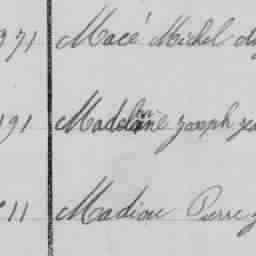 371 Macé Michel
191 Madelaine Joseph
11 Madiou Pierre